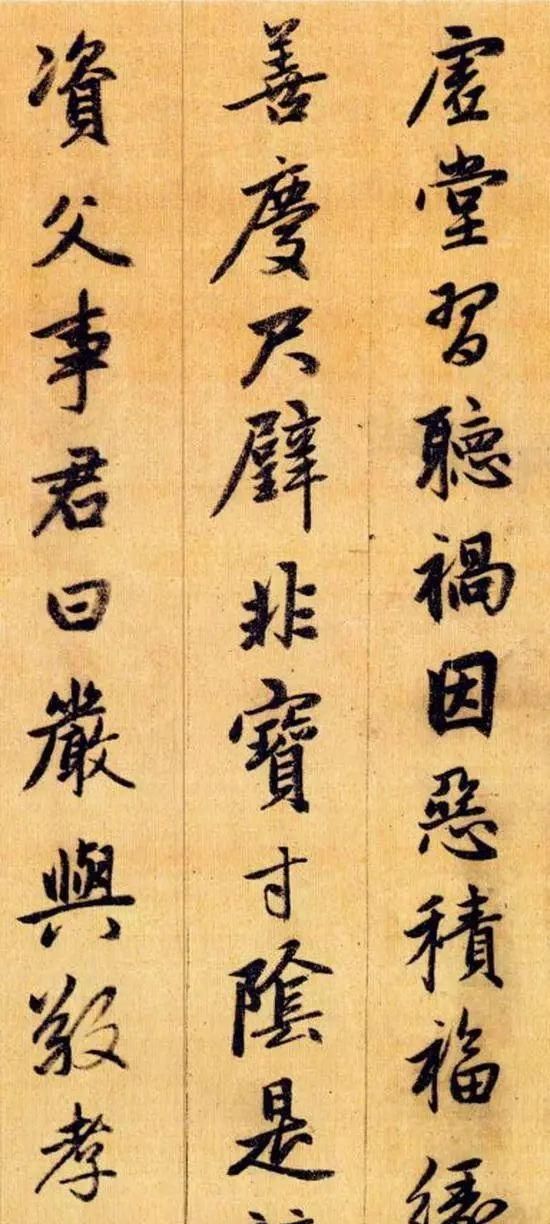 虛堂習聽禍因惡積福緣
善慶尺璧非寶寸陰是
資父事君曰嚴與敬孝